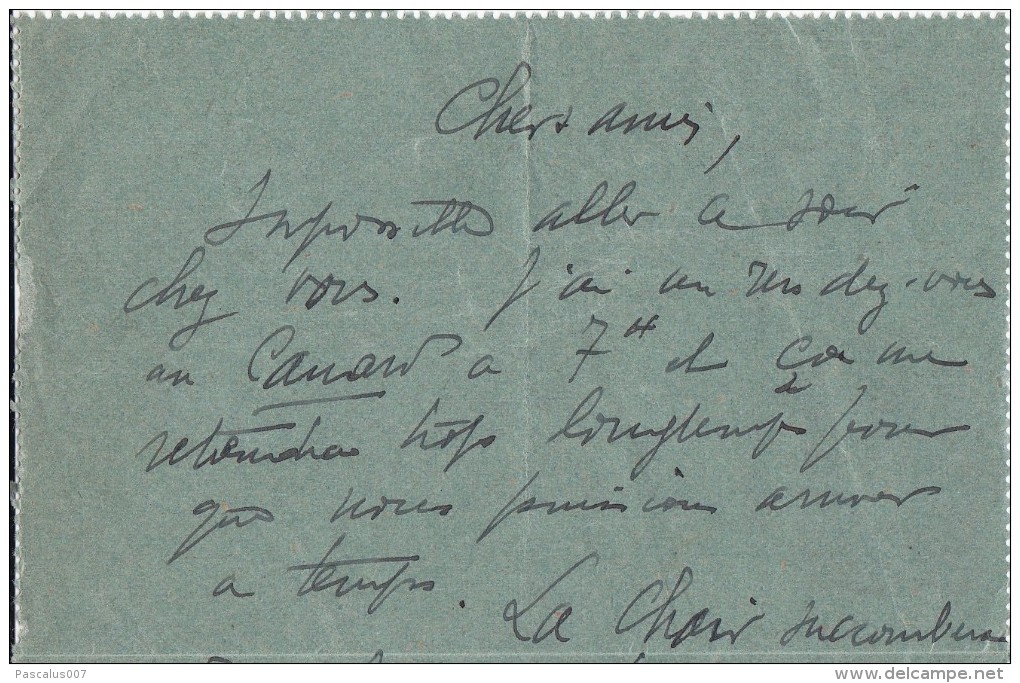 Chers amis,
Impossible aller ce soir
chez vous. J'ai un rendez-vous
au Canard à 7H et ça me
retiendra trop longtemps pour
que nous puissions arriver
à temps. La Chair succombera
Pascalus007
www.delcampe.net